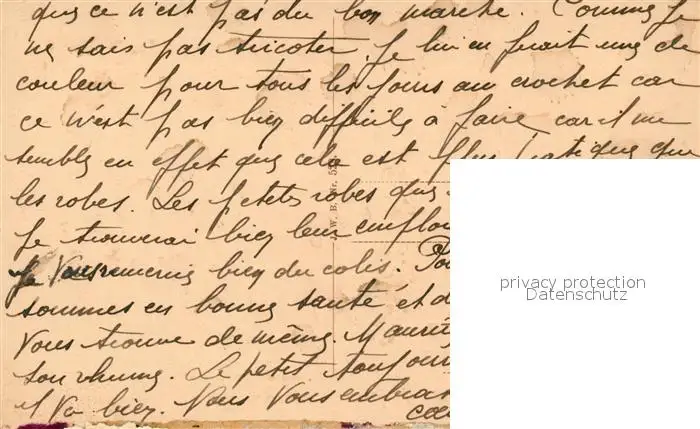 que ce n'est pas du bon marché. Comme je
ne sais pas tricoter je lui en ferait une de
couleur pour tous les jours au crochet car
ce n'est pas bien difficile à faire car il me
semble en effet que cela est plus pratique que
les robes. Les petites robes que
je trouverai bien leur emploi
Je Vous remercie bien du colis.
sommes en bonne santé et
Vous trouve de même.
son rhume. Le petit toujours
il va bien. Nous Vous embras
privacy protection
Datenschutz